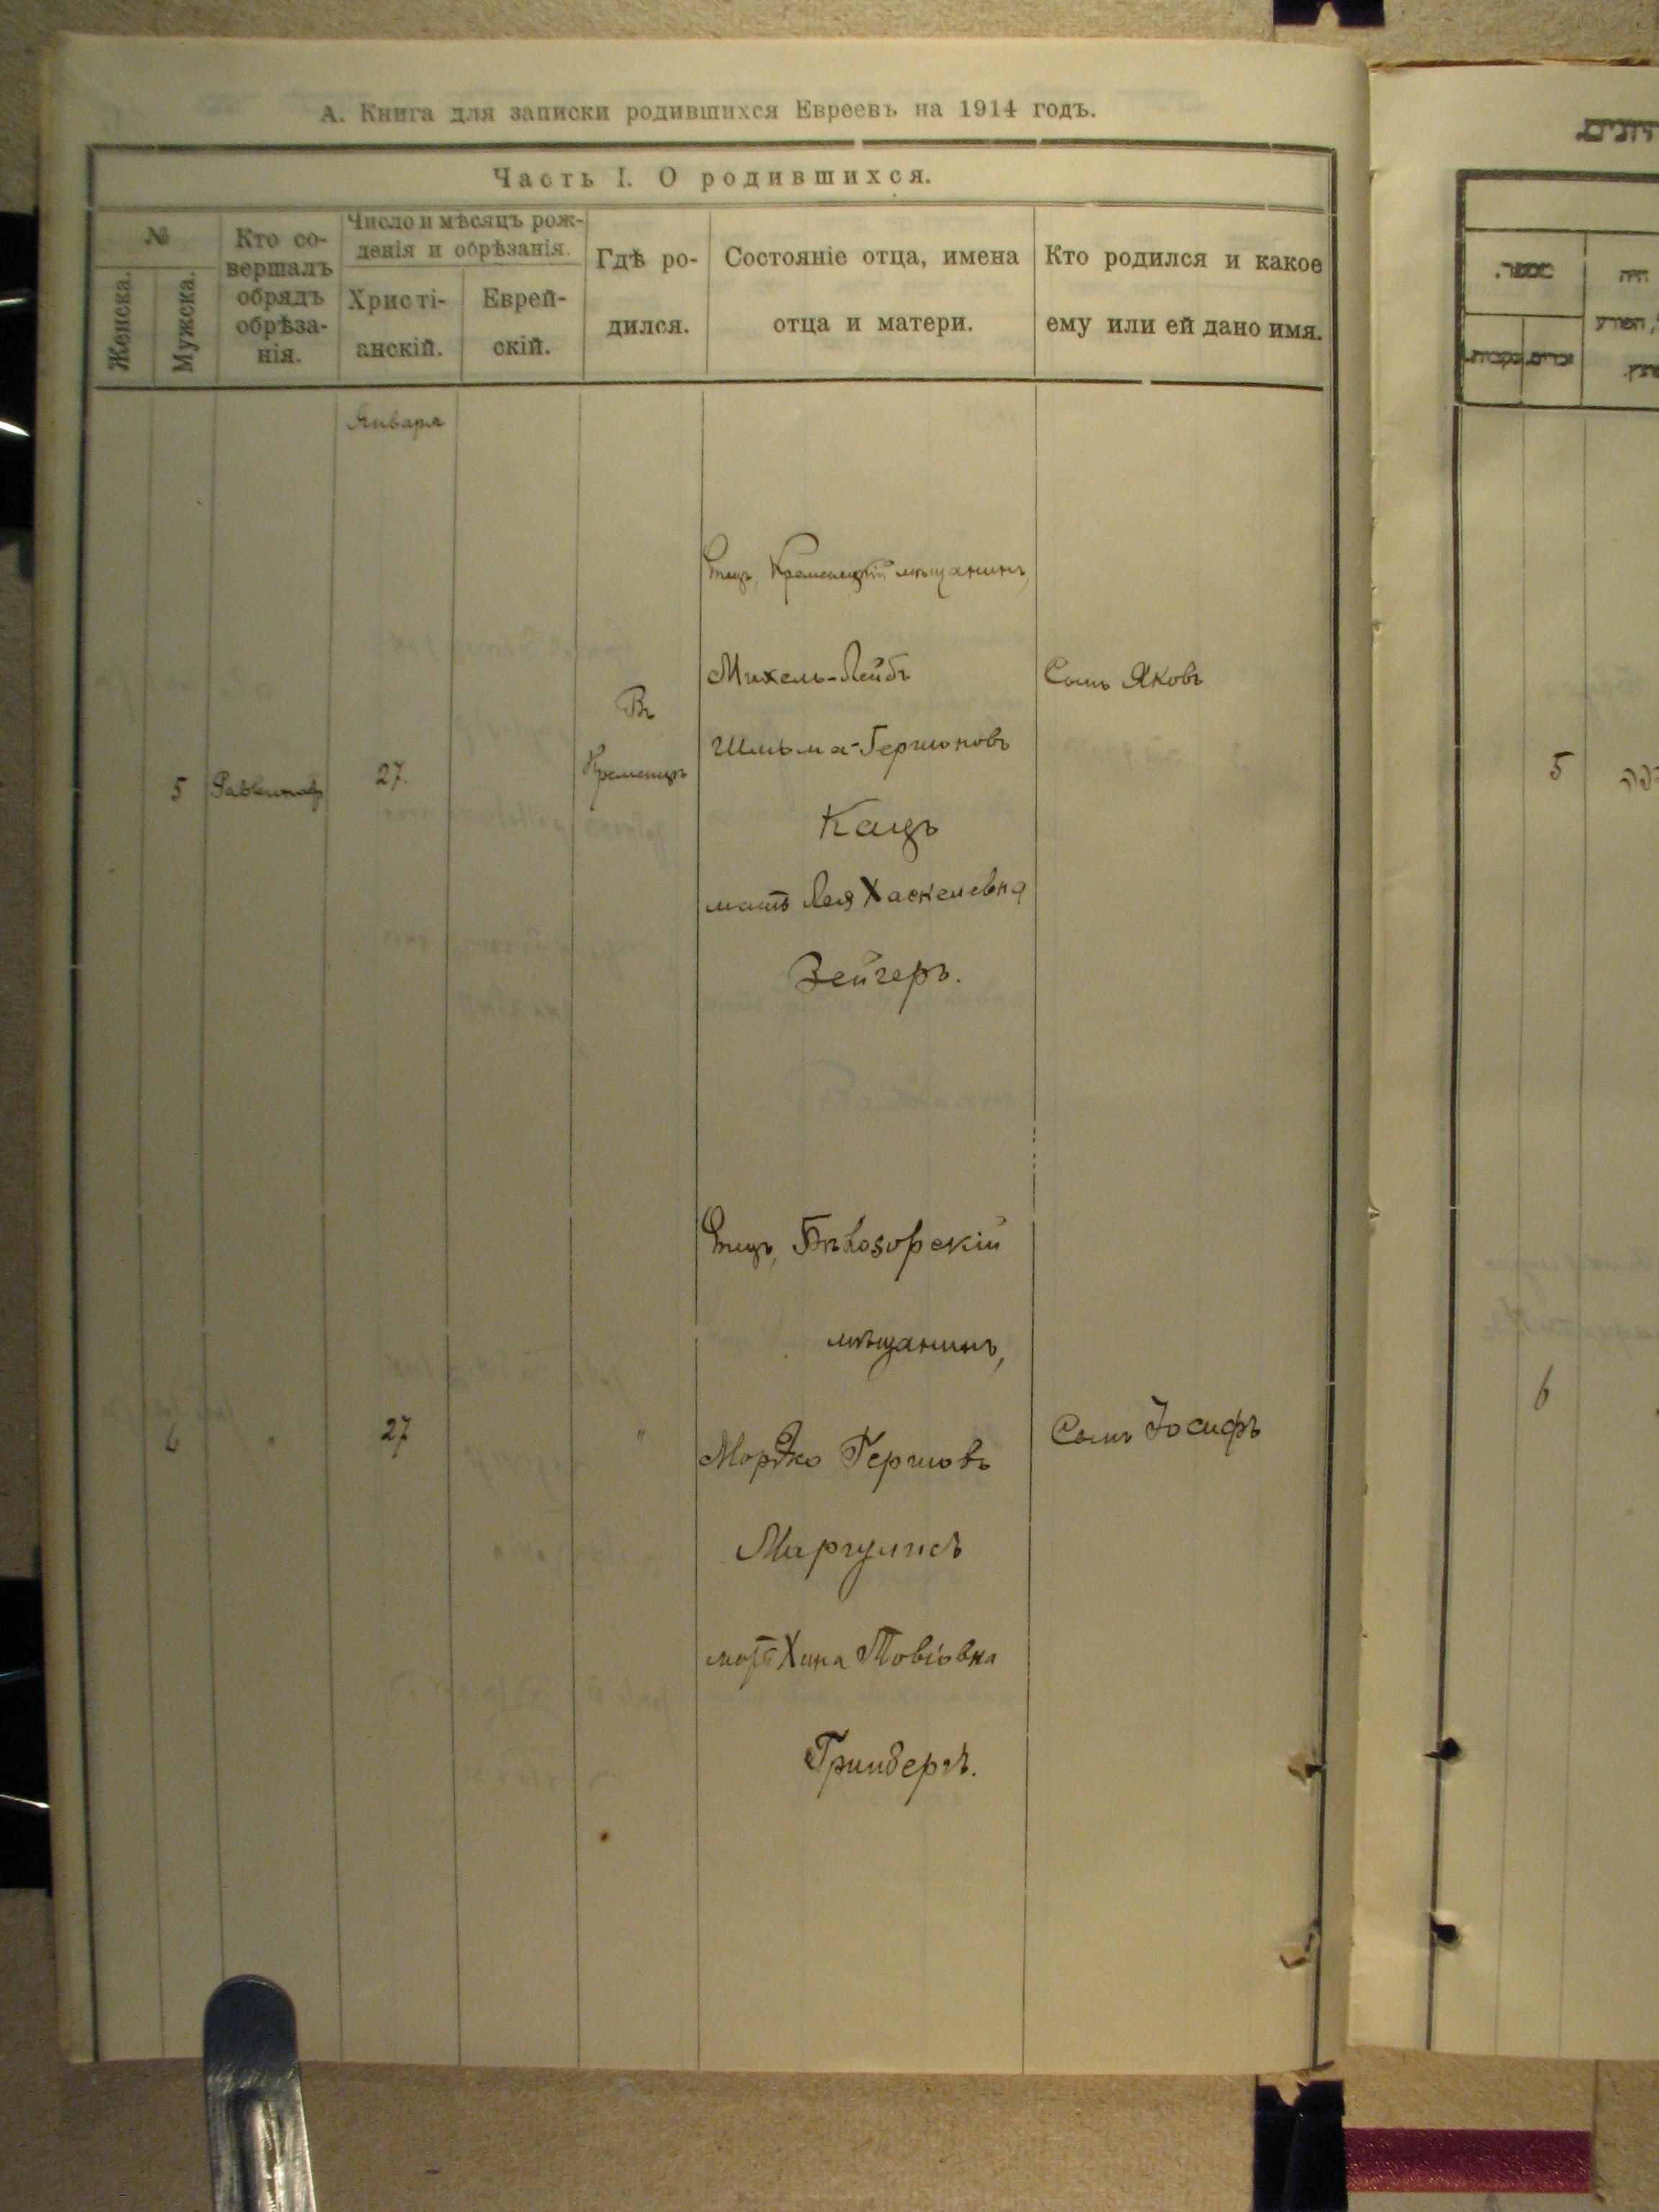 А. Книга для записки родившихся Евреевъ на 1914 годъ.
Часть I. О родившихся.
№
Женска.
Мужска.
Кто со-
вершалъ
обрядъ
обрѣза-
нія.
Число и мѣсяцъ рож-
денія и обрѣзанія.
Христі-
анскій.
Еврей-
скій.
Гдѣ ро-
дился.
Состояніе отца, имена
отца и матери.
Кто родился и какое
ему или ей дано имя.
Января
5
27.
Въ
Кременцѣ
Отецъ, Кременецкій мѣщанинъ,
Михель-Лейбъ
Шльома-Гершоновъ
Кацъ
мать Лея Хаскелевна
Зейгеръ.
Сынъ Яковъ
6
"
27
"
Отецъ, Бѣлозорскій
мѣщанинъ,
Мордко Гершовъ
Маргулисъ
мать Хина Товіовна
Гринбергъ.
Сынъ Іосифъ
5
6